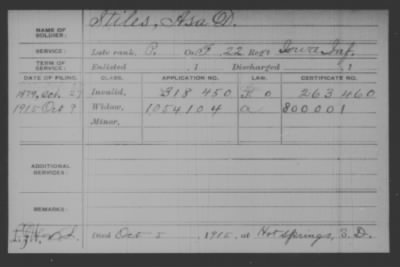 NAME OF SOLDIER: Stiles, Asa D.
SERVICE: Late rank, P. Co. F, 22 Reg't Iowa Inf.
TERM OF SERVICE: Enlisted , 1 Discharged , 1
DATE OF FILING. CLASS. APPLICATION NO. LAW. CERTIFICATE NO.
1879, Oct. 27 Invalid, 318 450 263 460
1915 Oct 9 Widow, 1054104 a 800001
Minor,
ADDITIONAL SERVICES:
REMARKS:
Died Oct 5 1915, at Hot Springs, S. D.